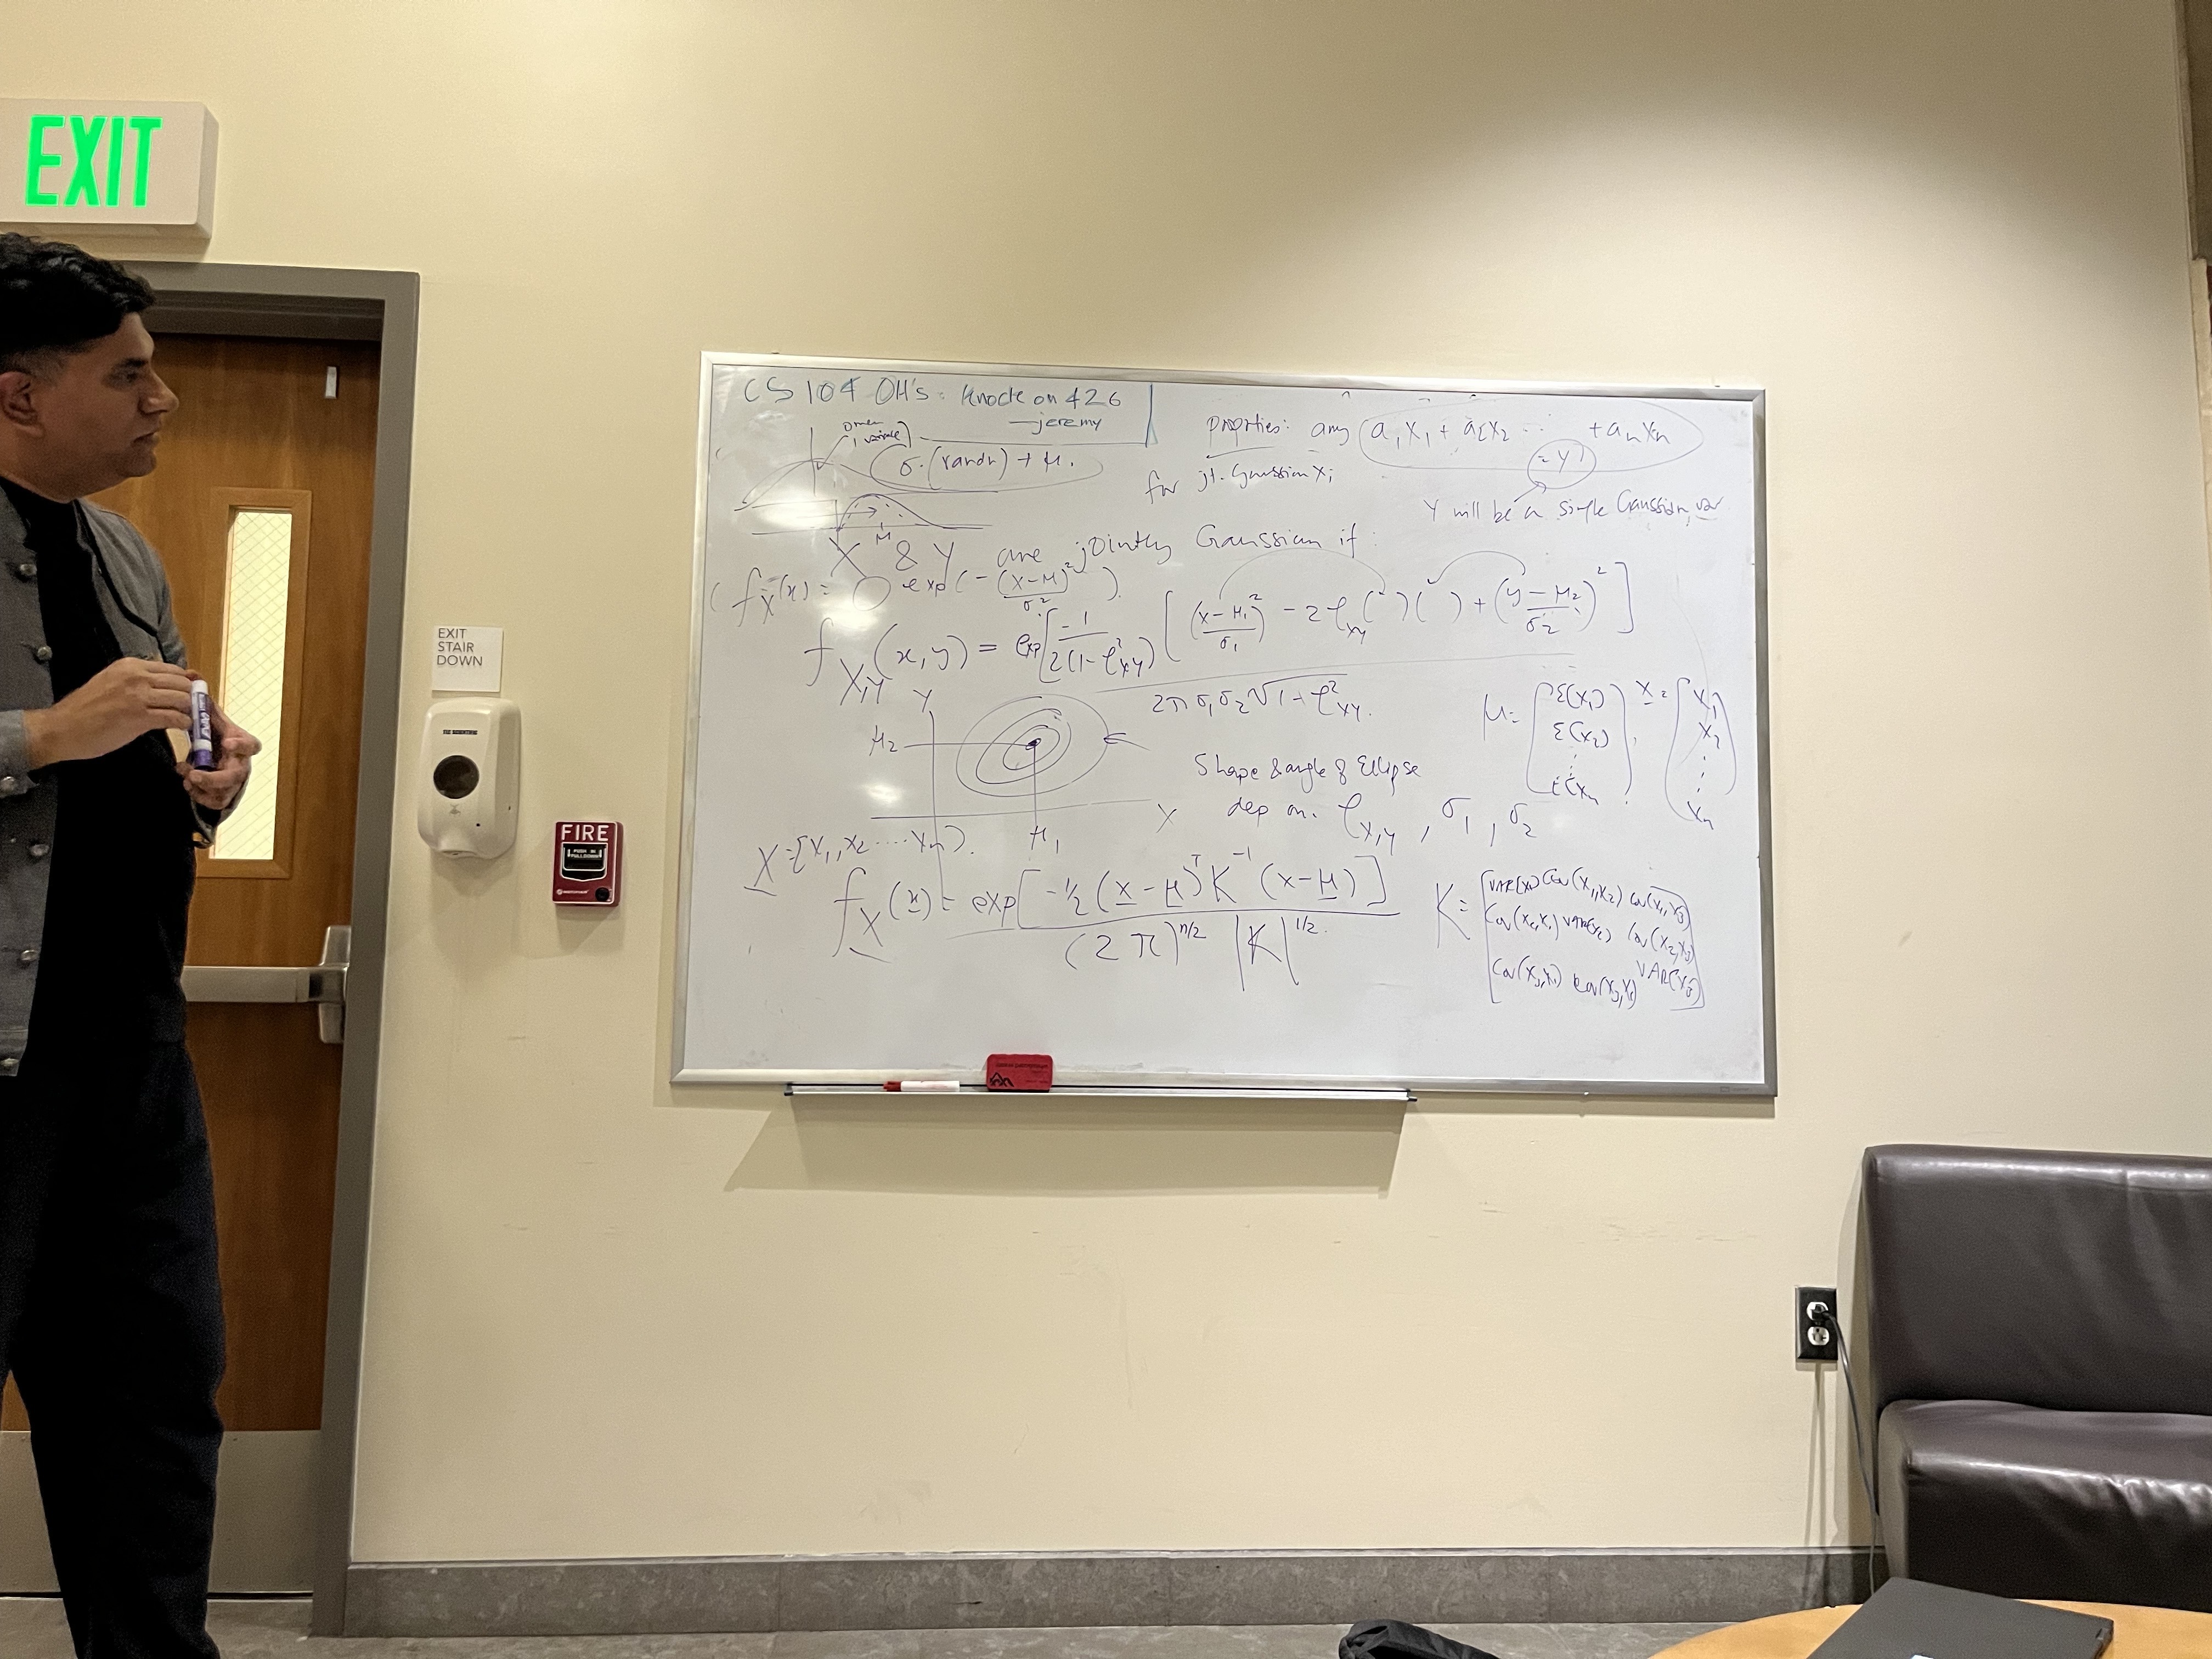 EXIT
EXIT
STAIR
DOWN
FIRE
CS 104 OH's: Knock on 426
—jeremy
1 variable
σ·(randn) + μ.
μ
Properties: any a₁X₁ + a₂X₂ ... + aₙXₙ
= Y
for jt. Gaussian Xᵢ
Y will be a single Gaussian var
X & Y are jointly Gaussian if:
(f_X(x) = exp(-(x-μ)²/σ²).
f_X,Y(x,y) = exp[-1/2(1-ρ²_XY) [((x-μ₁)/σ₁)² - 2ρ_XY( )( ) + ((y-μ₂)/σ₂)²]
2π σ₁σ₂√1-ρ²_XY.
Y
μ₂
μ₁
X
Shape & angle of Ellipse
dep on. ρ_X,Y , σ₁ , σ₂
μ = [E(X₁) E(X₂) ⋮ E(Xₙ], X = [X₁ X₂ ⋮ Xₙ]
X = [X₁, X₂ .... Xₙ).
f_X(x) = exp[-1/2 (x-μ)ᵀ K⁻¹ (x-μ)]
(2π)^n/2 |K|^1/2.
K = [VAR(X₁) Cov(X₁,X₂) Cov(X₁,X₃)
Cov(X₂,X₁) VAR(X₂) Cov(X₂,X₃)
Cov(X₃,X₁) VAR(X₃)]